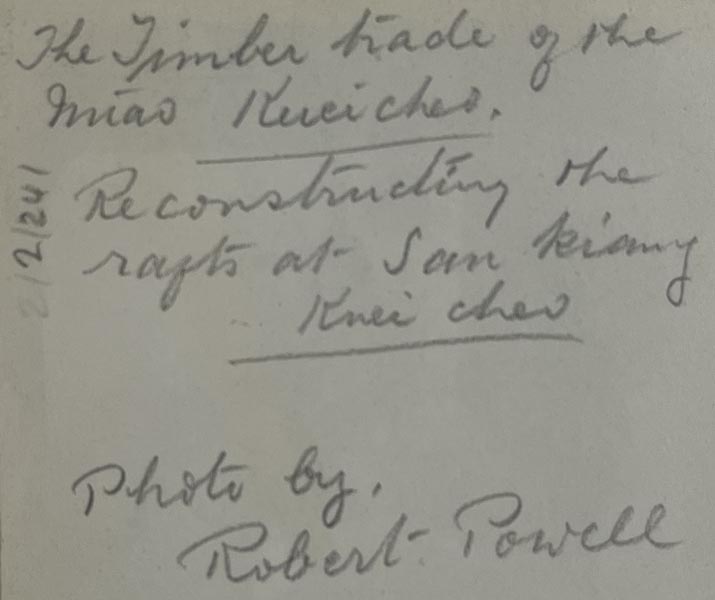 The Timber trade of the
Miao Kueicheo.
Reconstructing the
rafts at San kiang
Kuei cheo
Photo by,
Robert. Powell
2/2/241